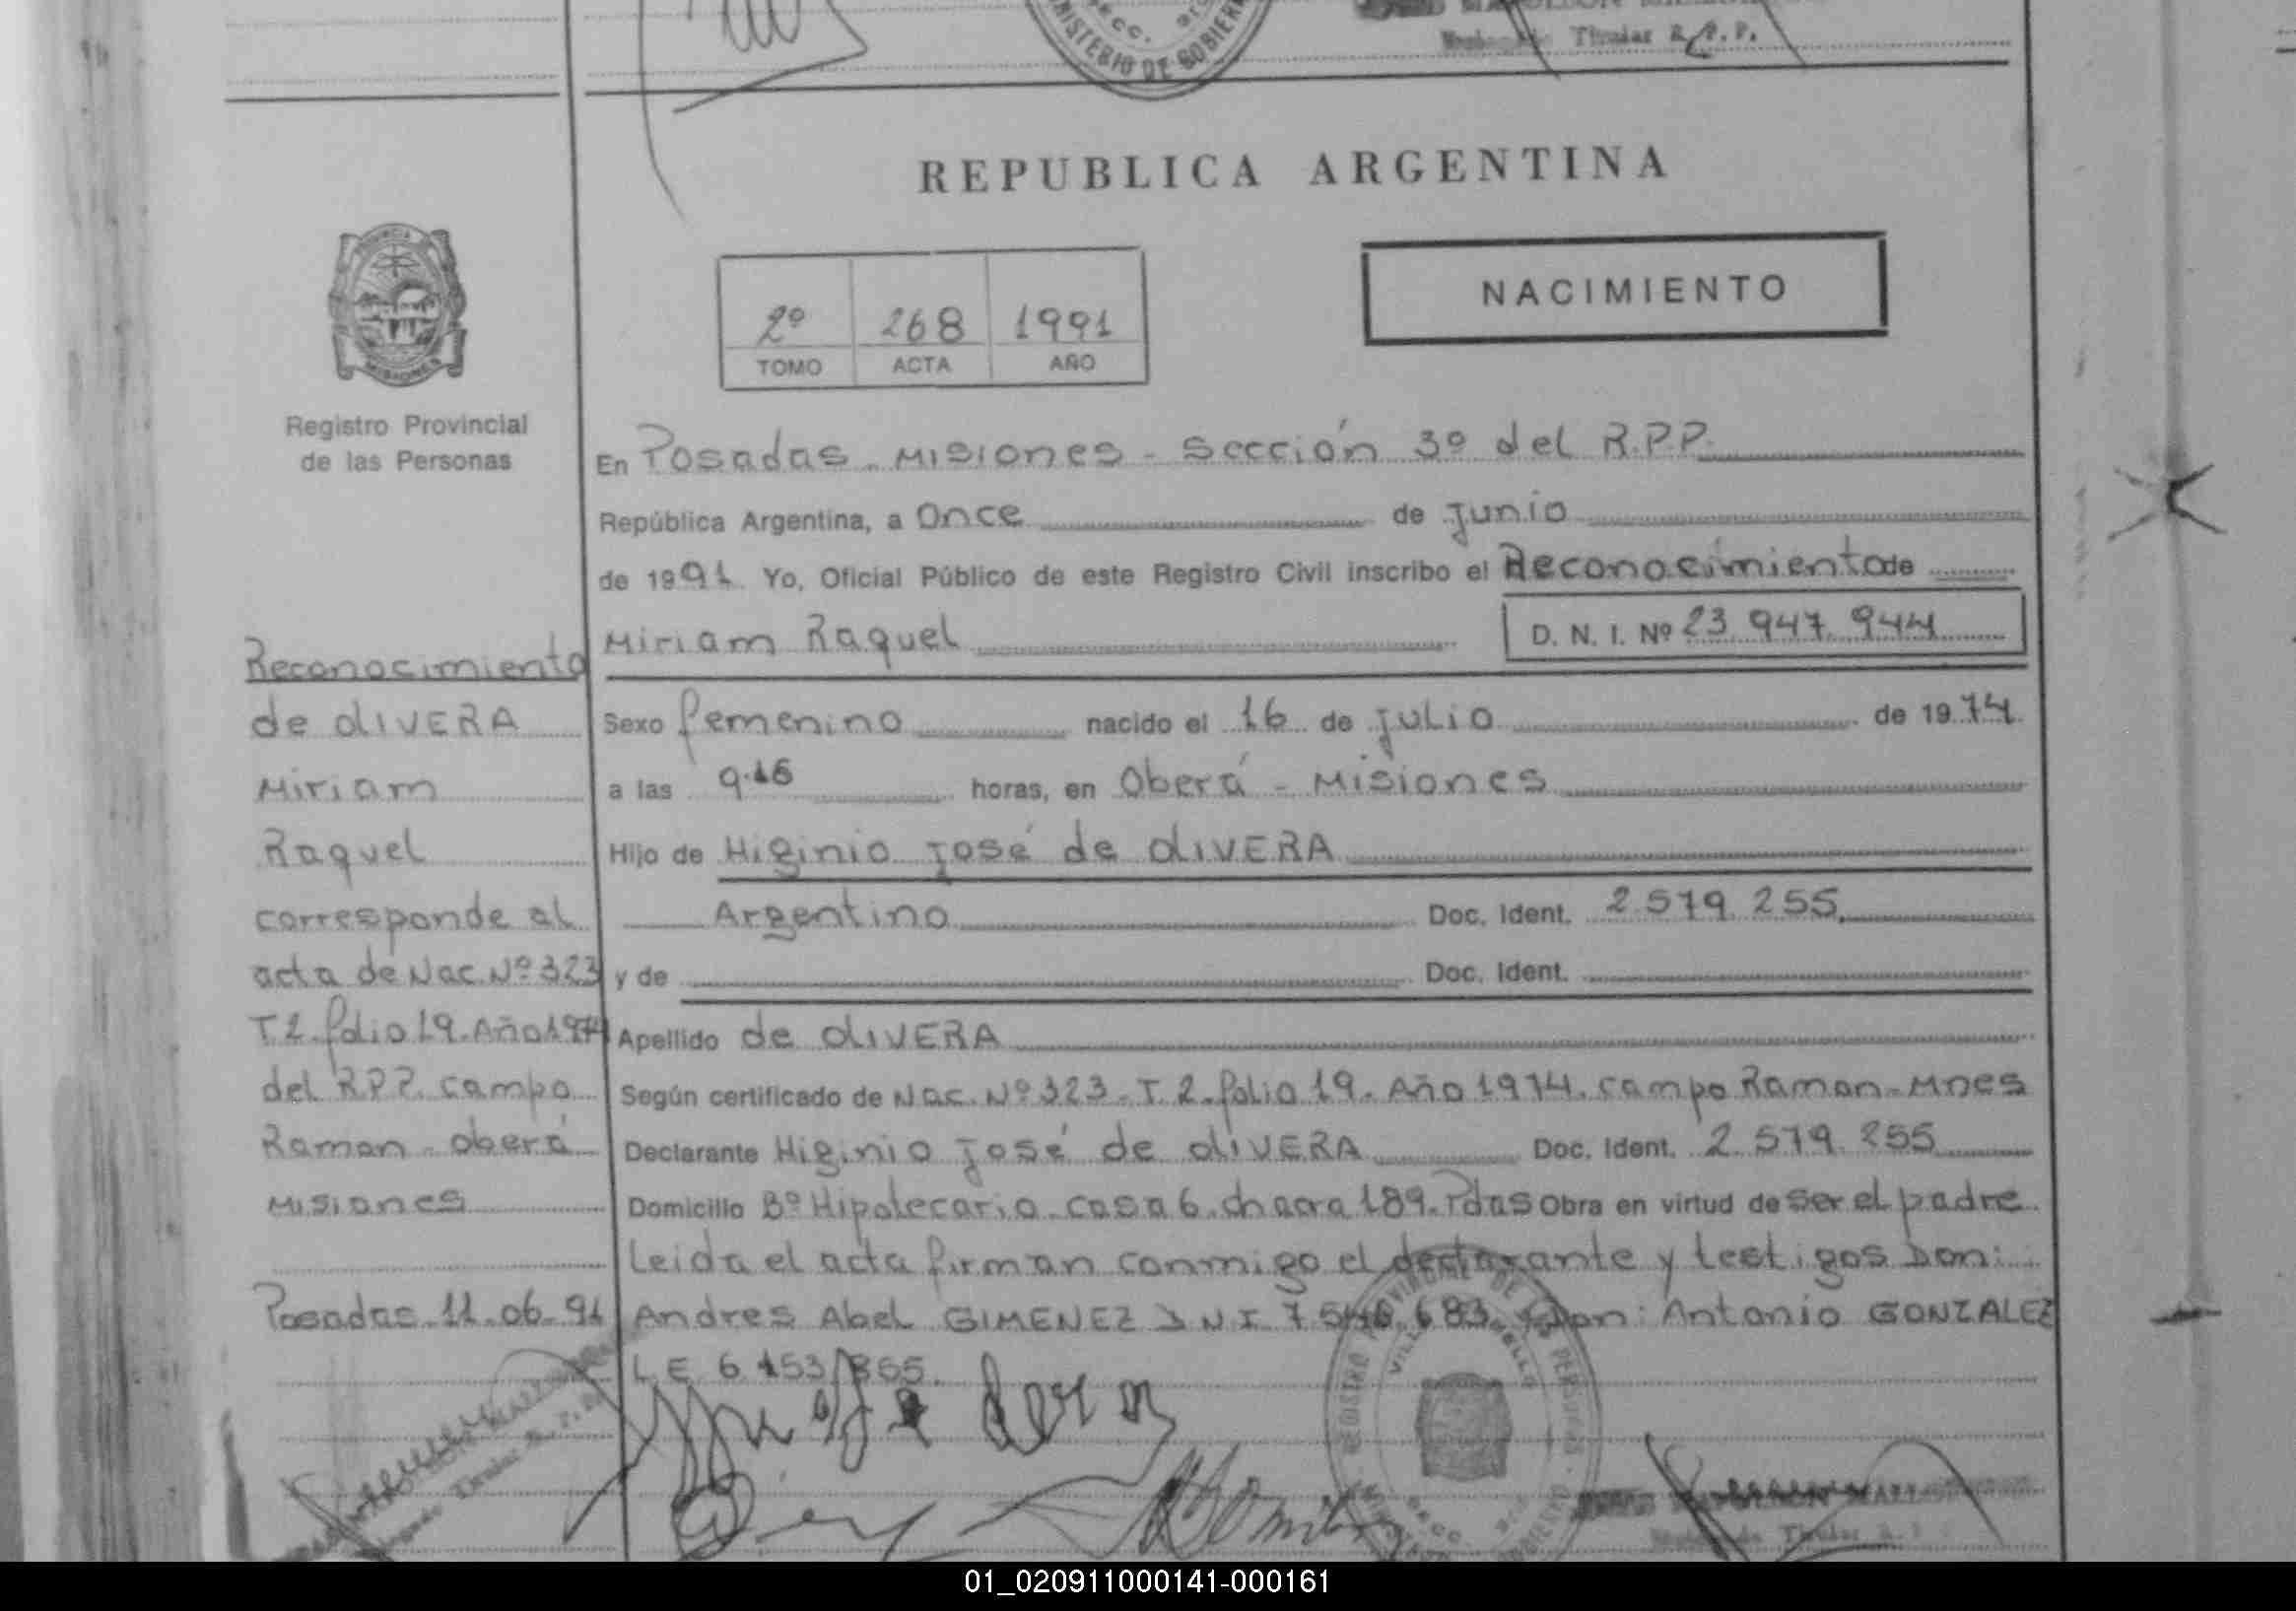 MINISTERIO DE GOBIERNO
Titular R.P.P.
REPUBLICA ARGENTINA
PROVINCIA
MISIONES
2º 268 1991
TOMO ACTA AÑO
NACIMIENTO
Registro Provincial
de las Personas
En Posadas - Misiones - Sección 3º del R.P.P.
República Argentina, a Once de Junio
de 1991 Yo, Oficial Público de este Registro Civil inscribo el Reconocimiento de
Miriam Raquel D. N. I. Nº 23.947.944
Sexo femenino nacido el 16 de Julio de 1974
a las 9.15 horas, en Oberá - Misiones
Hijo de Higinio José de OLIVERA
Argentino Doc. Ident. 2.579.255
y de Doc. Ident.
Apellido de OLIVERA
Según certificado de Nac. Nº 323 - T. 2. folio 19. Año 1974. Campo Ramon - Mnes
Declarante Higinio José de OLIVERA Doc. Ident. 2.579.255
Domicilio Bº Hipotecario. casa 6. chacra 189. Pdas Obra en virtud de ser el padre.
Leida el acta firman conmigo el declarante y testigos Don:
Andres Abel GIMENEZ D.N.I. 7.546.683 y Don: Antonio GONZALEZ
L.E. 6.153.855.
Reconocimiento
de OLIVERA
Miriam
Raquel
corresponde al
acta de Nac. Nº 323
T 2. folio 19. Año 1974
del R.P.P. Campo
Ramon - Oberá
Misiones
Posadas 11.06.91
01_020911000141-000161